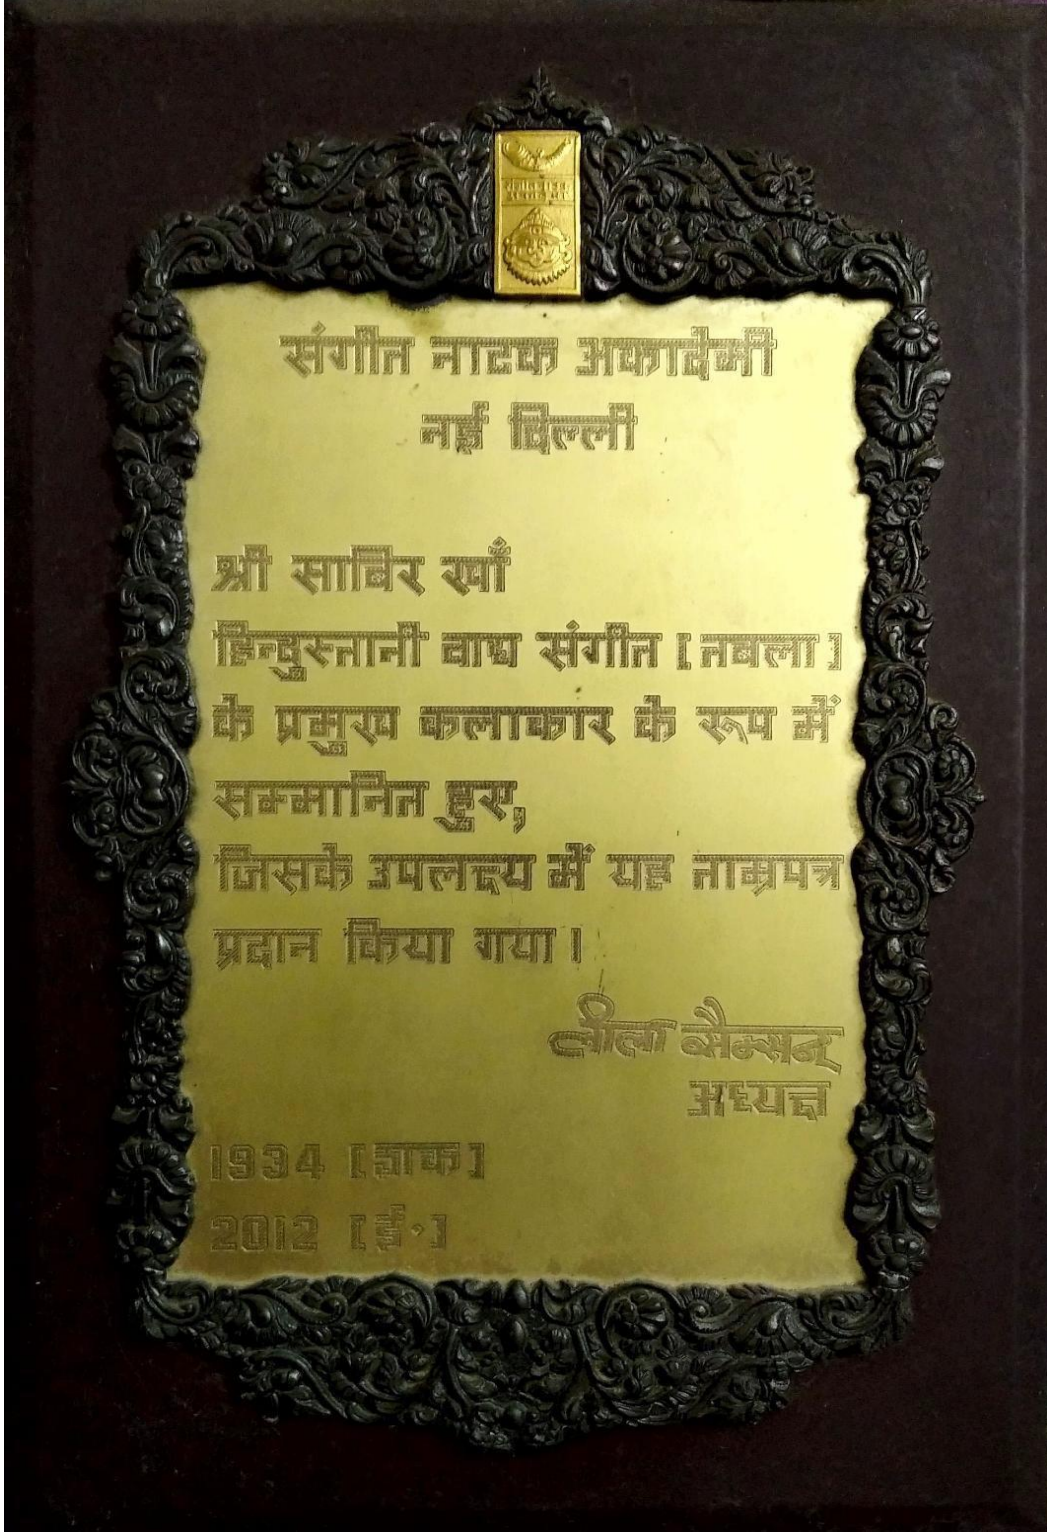 संगीत नाटक अकादेमी
नई दिल्ली
श्री साबिर खाँ
हिन्दुस्तानी वाद्य संगीत [तबला]
के प्रमुख कलाकार के रूप में
सम्मानित हुए,
जिसके उपलक्ष्य में यह ताम्रपत्र
प्रदान किया गया।
लीला सैमसन्
अध्यक्ष
1934 [शक]
2012 [ई॰]